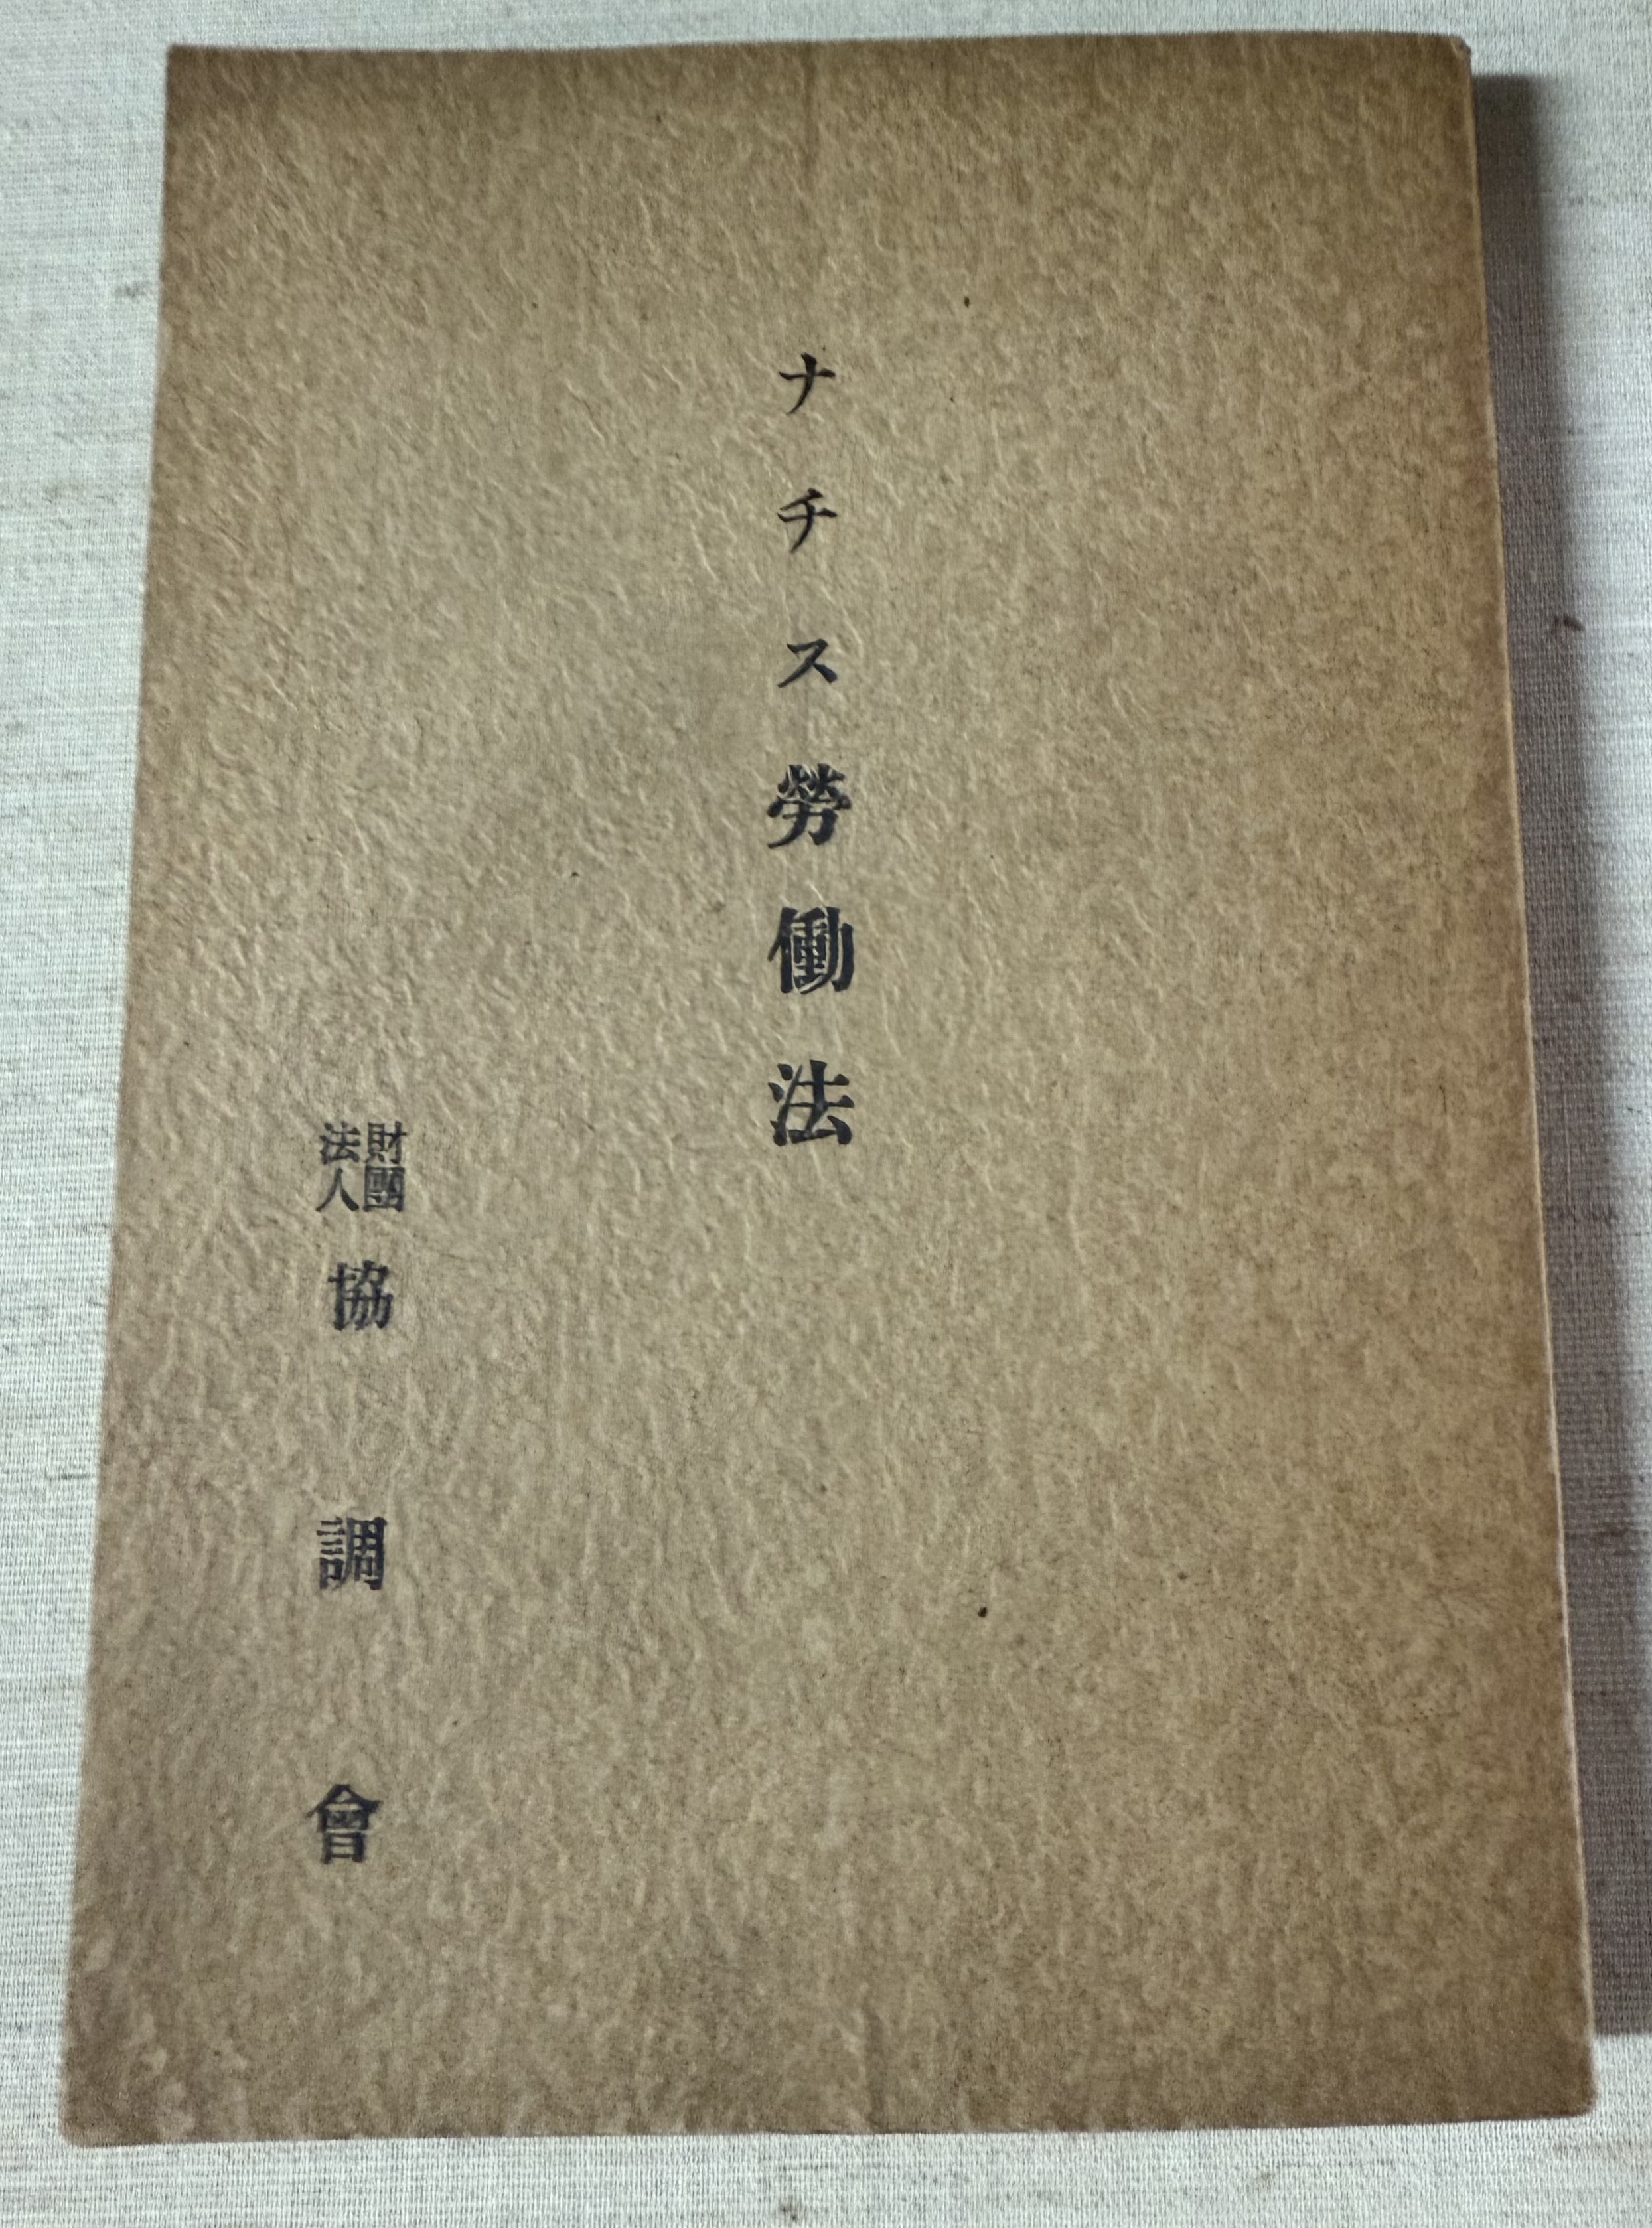 ナチス勞働法
財團法人 協調會